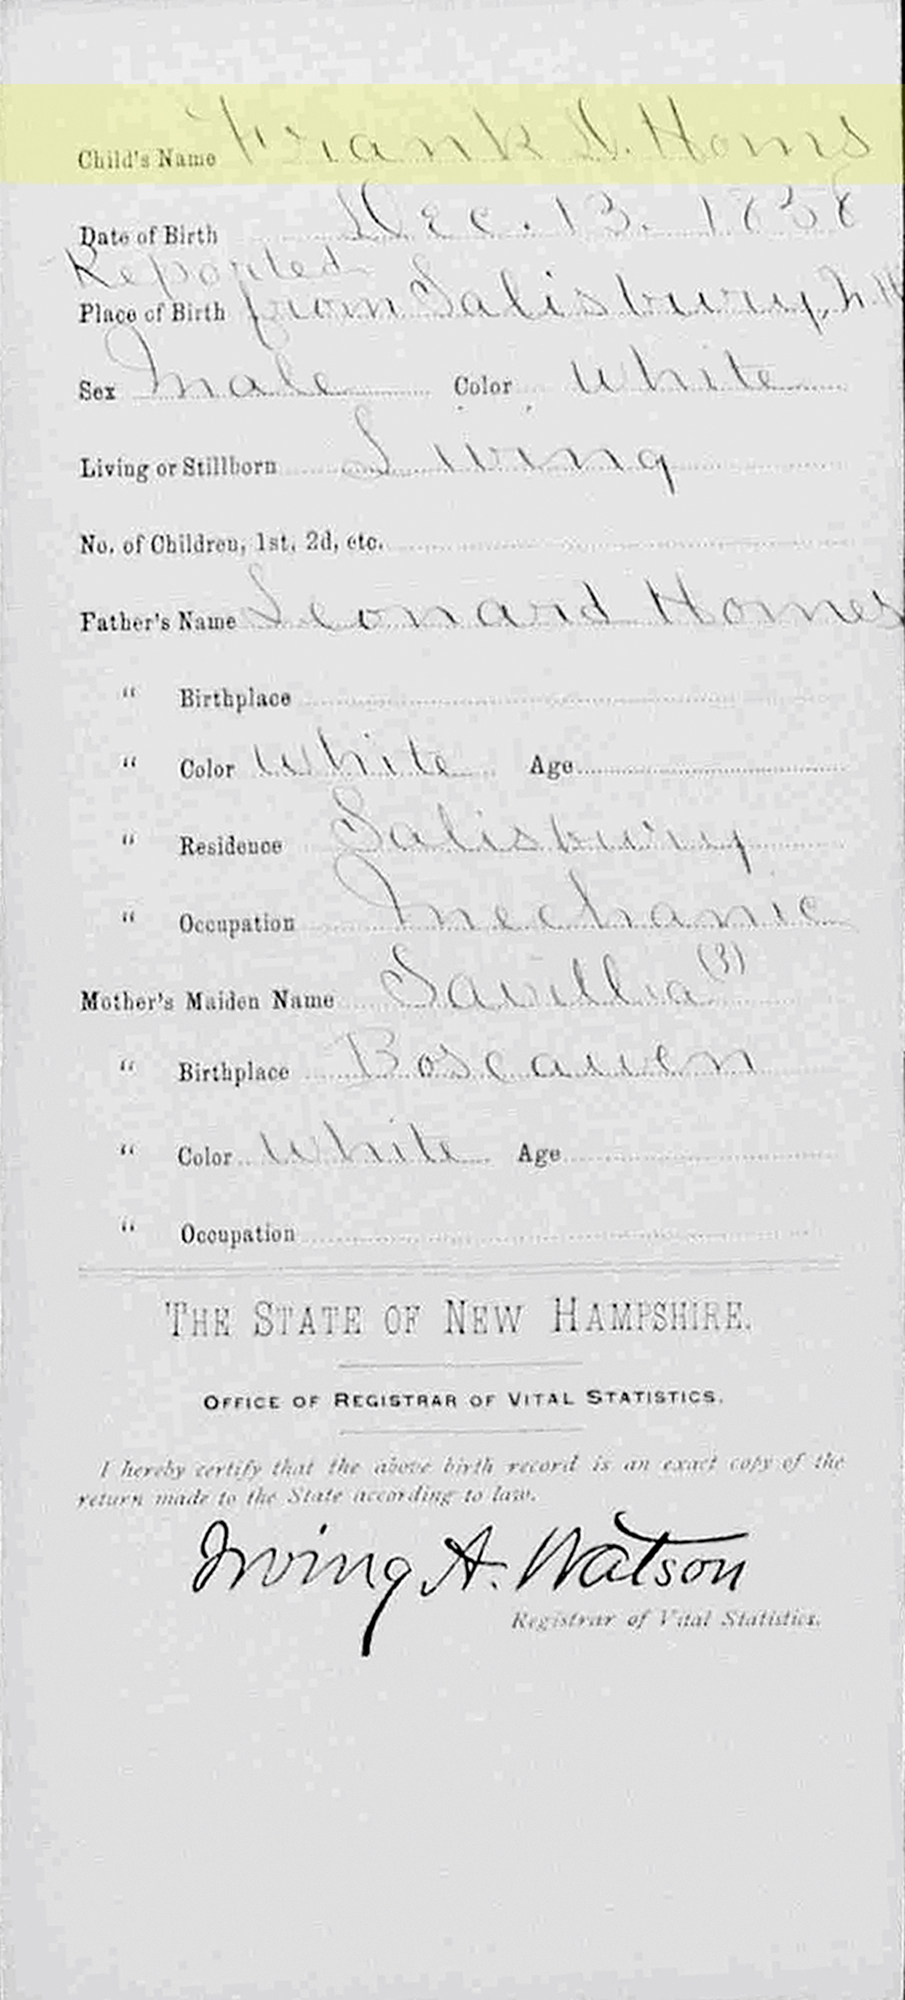 Child's Name Frank D. Homs
Date of Birth Dec. 13. 1858
Reported
Place of Birth from Salisbury, N.H
Sex Male Color White
Living or Stillborn Living
No. of Children, 1st, 2d, etc.
Father's Name Leonard Homes
" Birthplace
" Color White Age
" Residence Salisbury
" Occupation Mechanic
Mother's Maiden Name Savillia (3)
" Birthplace Boscawen
" Color White Age
" Occupation
THE STATE OF NEW HAMPSHIRE.
OFFICE OF REGISTRAR OF VITAL STATISTICS.
I hereby certify that the above birth record is an exact copy of the
return made to the State according to law.
Irving A. Watson
Registrar of Vital Statistics.